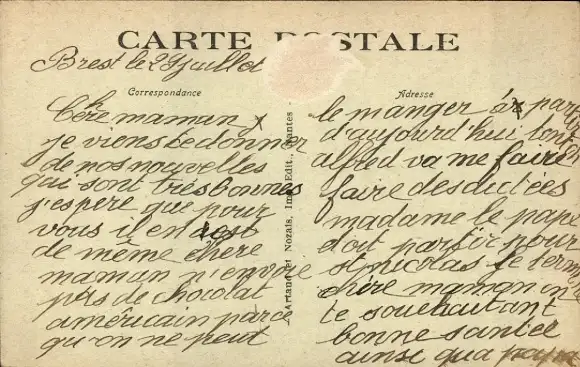 CARTE POSTALE
Brest le 29 Juillet
Correspondance
Chère maman
je viens te donner
de nos nouvelles
qui sont très bonnes
j'espere que pour
vous il en est
de même chère
maman n'envoie
pas de chocolat
américain parce
qu'on ne peut
Artaud et Nozais, Imp.-Edit., Nantes
Adresse
le manger à partir
d'aujourd'hui tonton
alfred va me faire
faire des dictées
madame le pape
doit partir pour
st nicolas je term
chère maman en
te souhaitant
bonne santer
ainsi qua papa